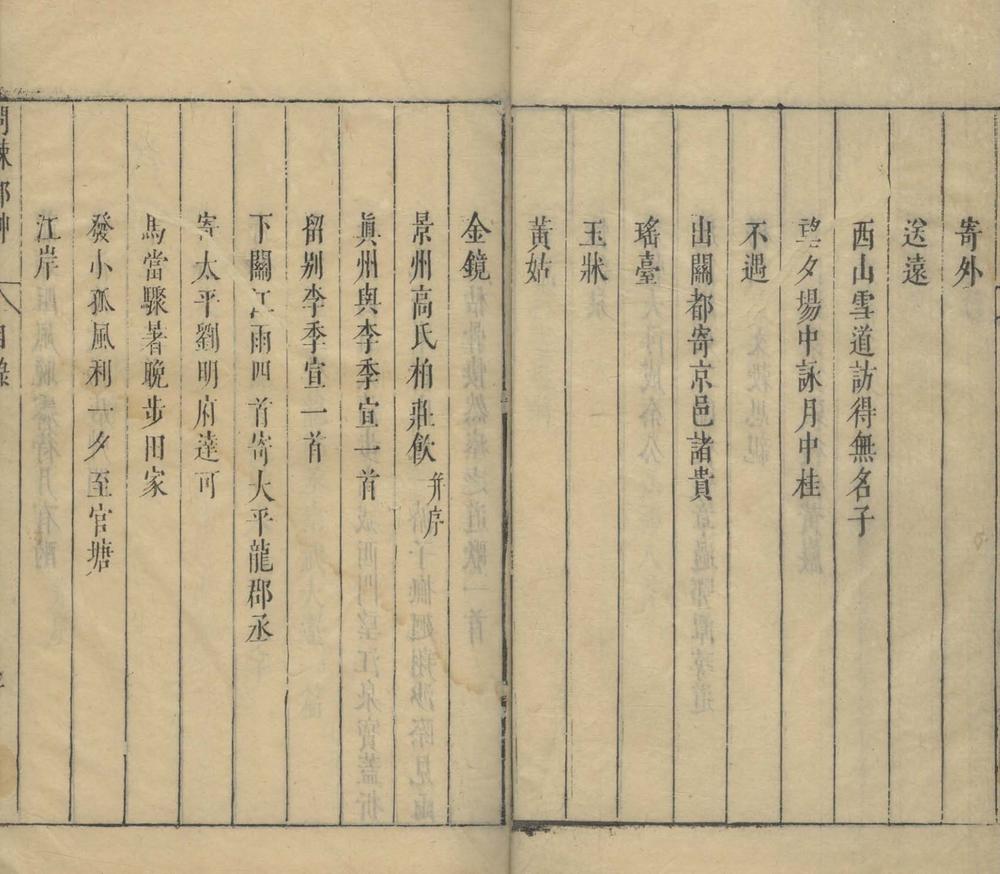 寄外
送遠
西山雪道訪得無名子
望夕場中詠月中桂
不遇
出關都寄京邑諸貴
瑤臺
玉牀
黃姑
金鏡
景州高氏柏莊飲并序
眞州與李季宣一首
留別李季宣一首
下關江雨四首寄大平龍郡丞
寄太平劉明府達可
馬當驟暑晚步田家
發小孤風利一夕至官塘
江岸
目錄